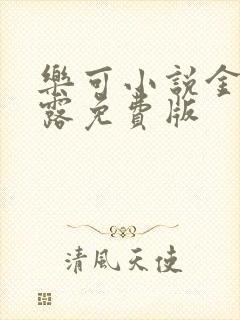 樂可小說金
露免費版
清風天使